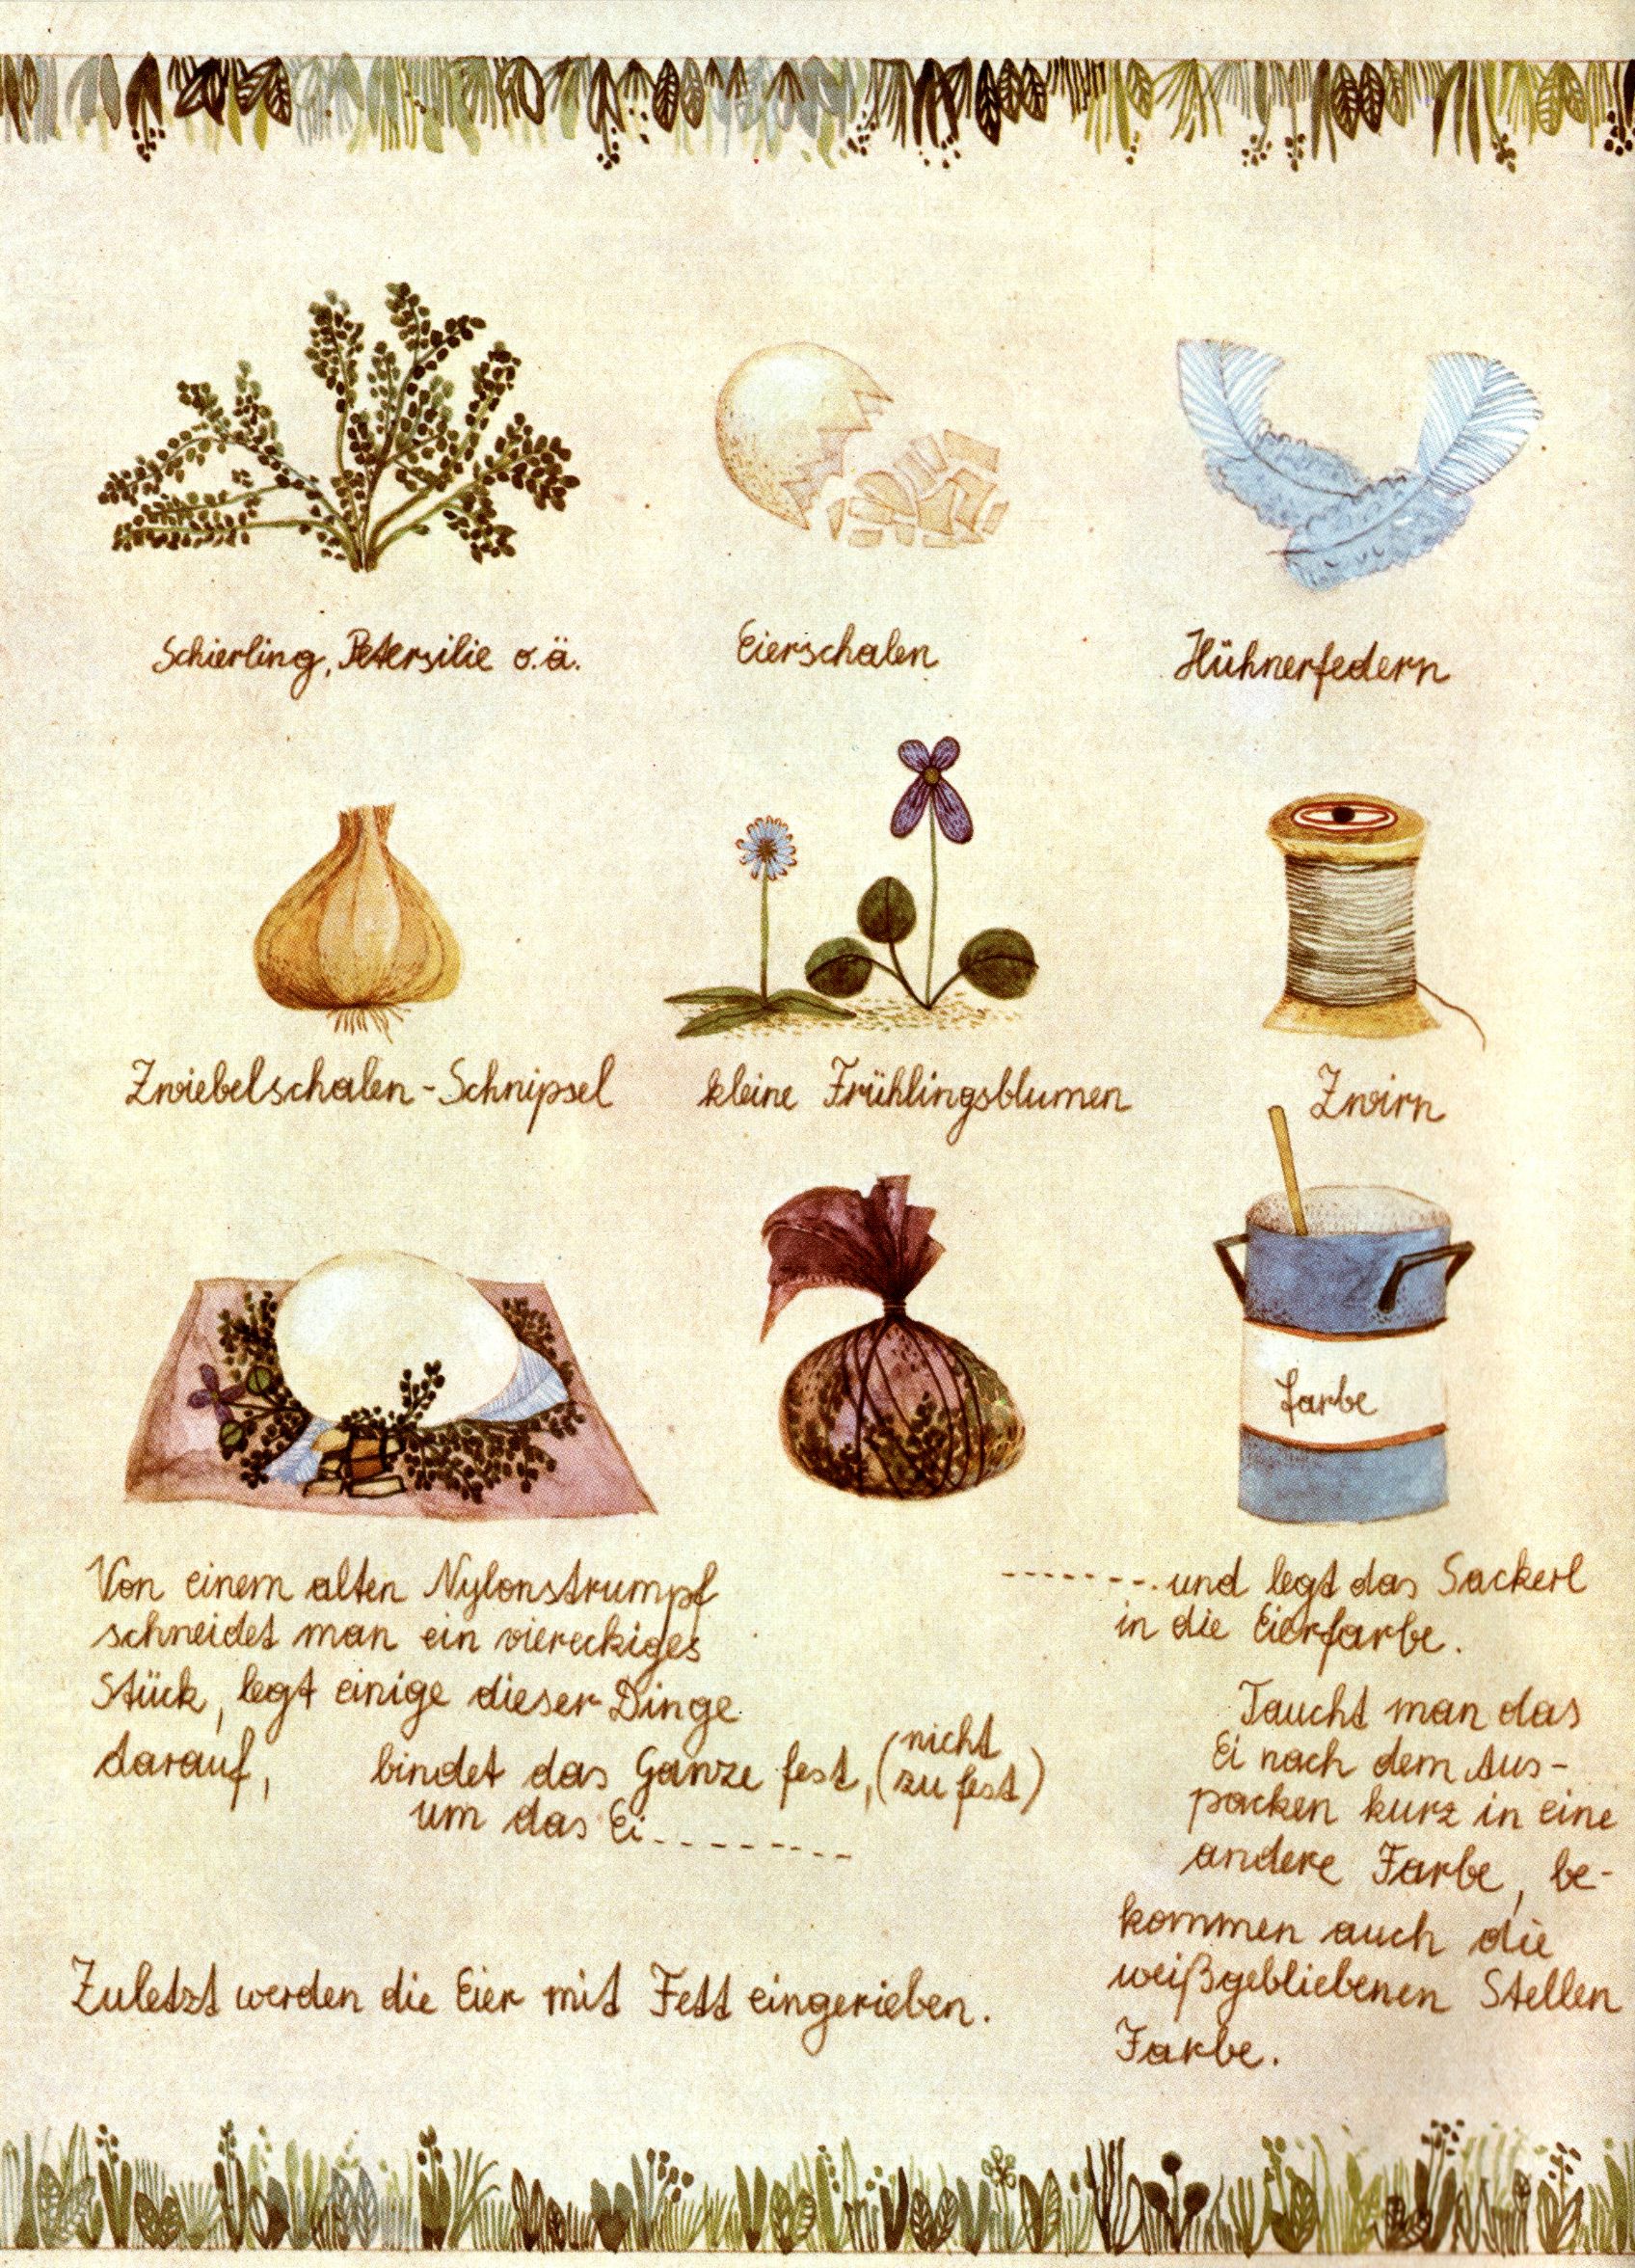 Schierling, Petersilie o.ä.
Eierschalen
Hühnerfedern
Zwiebelschalen-Schnipsel
kleine Frühlingsblumen
Zwirn
Farbe
Von einem alten Nylonstrumpf
schneidet man ein viereckiges
Stück, legt einige dieser Dinge
darauf,
bindet das Ganze fest, (nicht
zu fest)
um das Ei---------
-------und legt das Sackerl
in die Eierfarbe.
Taucht man das
Ei nach dem Aus-
packen kurz in eine
andere Farbe, be-
kommen auch die
weißgebliebenen Stellen
Farbe.
Zuletzt werden die Eier mit Fett eingerieben.